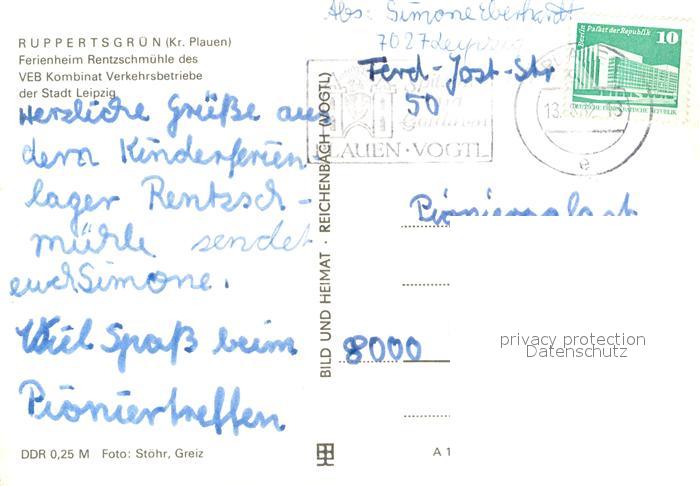 Abs: Simone Eberhardt
7027 Leipzig
Ferd-Jost-Str
50
RUPPERTSGRÜN (Kr. Plauen)
Ferienheim Rentzschmühle des
VEB Kombinat Verkehrsbetriebe
der Stadt Leipzig
Herzliche Grüße aus
dem Kinderferien-
lager Rentzsch-
mühle sendet
euch Simone.
Viel Spaß beim
Pioniertreffen
DDR 0,25 M Foto: Stöhr, Greiz
BILD UND HEIMAT · REICHENBACH (VOGTL)
Berlin Palast der Republik
10
DEUTSCHE DEMOKRATISCHE REPUBLIK
PLAUEN · VOGTL
e
8000
privacy protection
Datenschutz
A 1